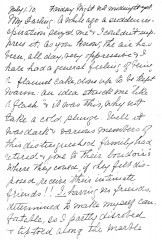 My Darling. A while ago a sudden in-
spiration seized me & I couldn't sup-
press it, as you know, the air has
been, all day, very oppressive & I
have had a general feeling of being
a flannel cake, done up to be kept
warm. An idea struck me like
a flash & it was this, why not
take a cold plunge. Well it
was dark & various members of
this distinguished family had
retired, some to their boudoirs
where they could, if they felt dis-
posed, receive their intimate
friends!! I having no friends
determined to make myself com-
fortable, so I partly disrobed
& tiptoed along the marble